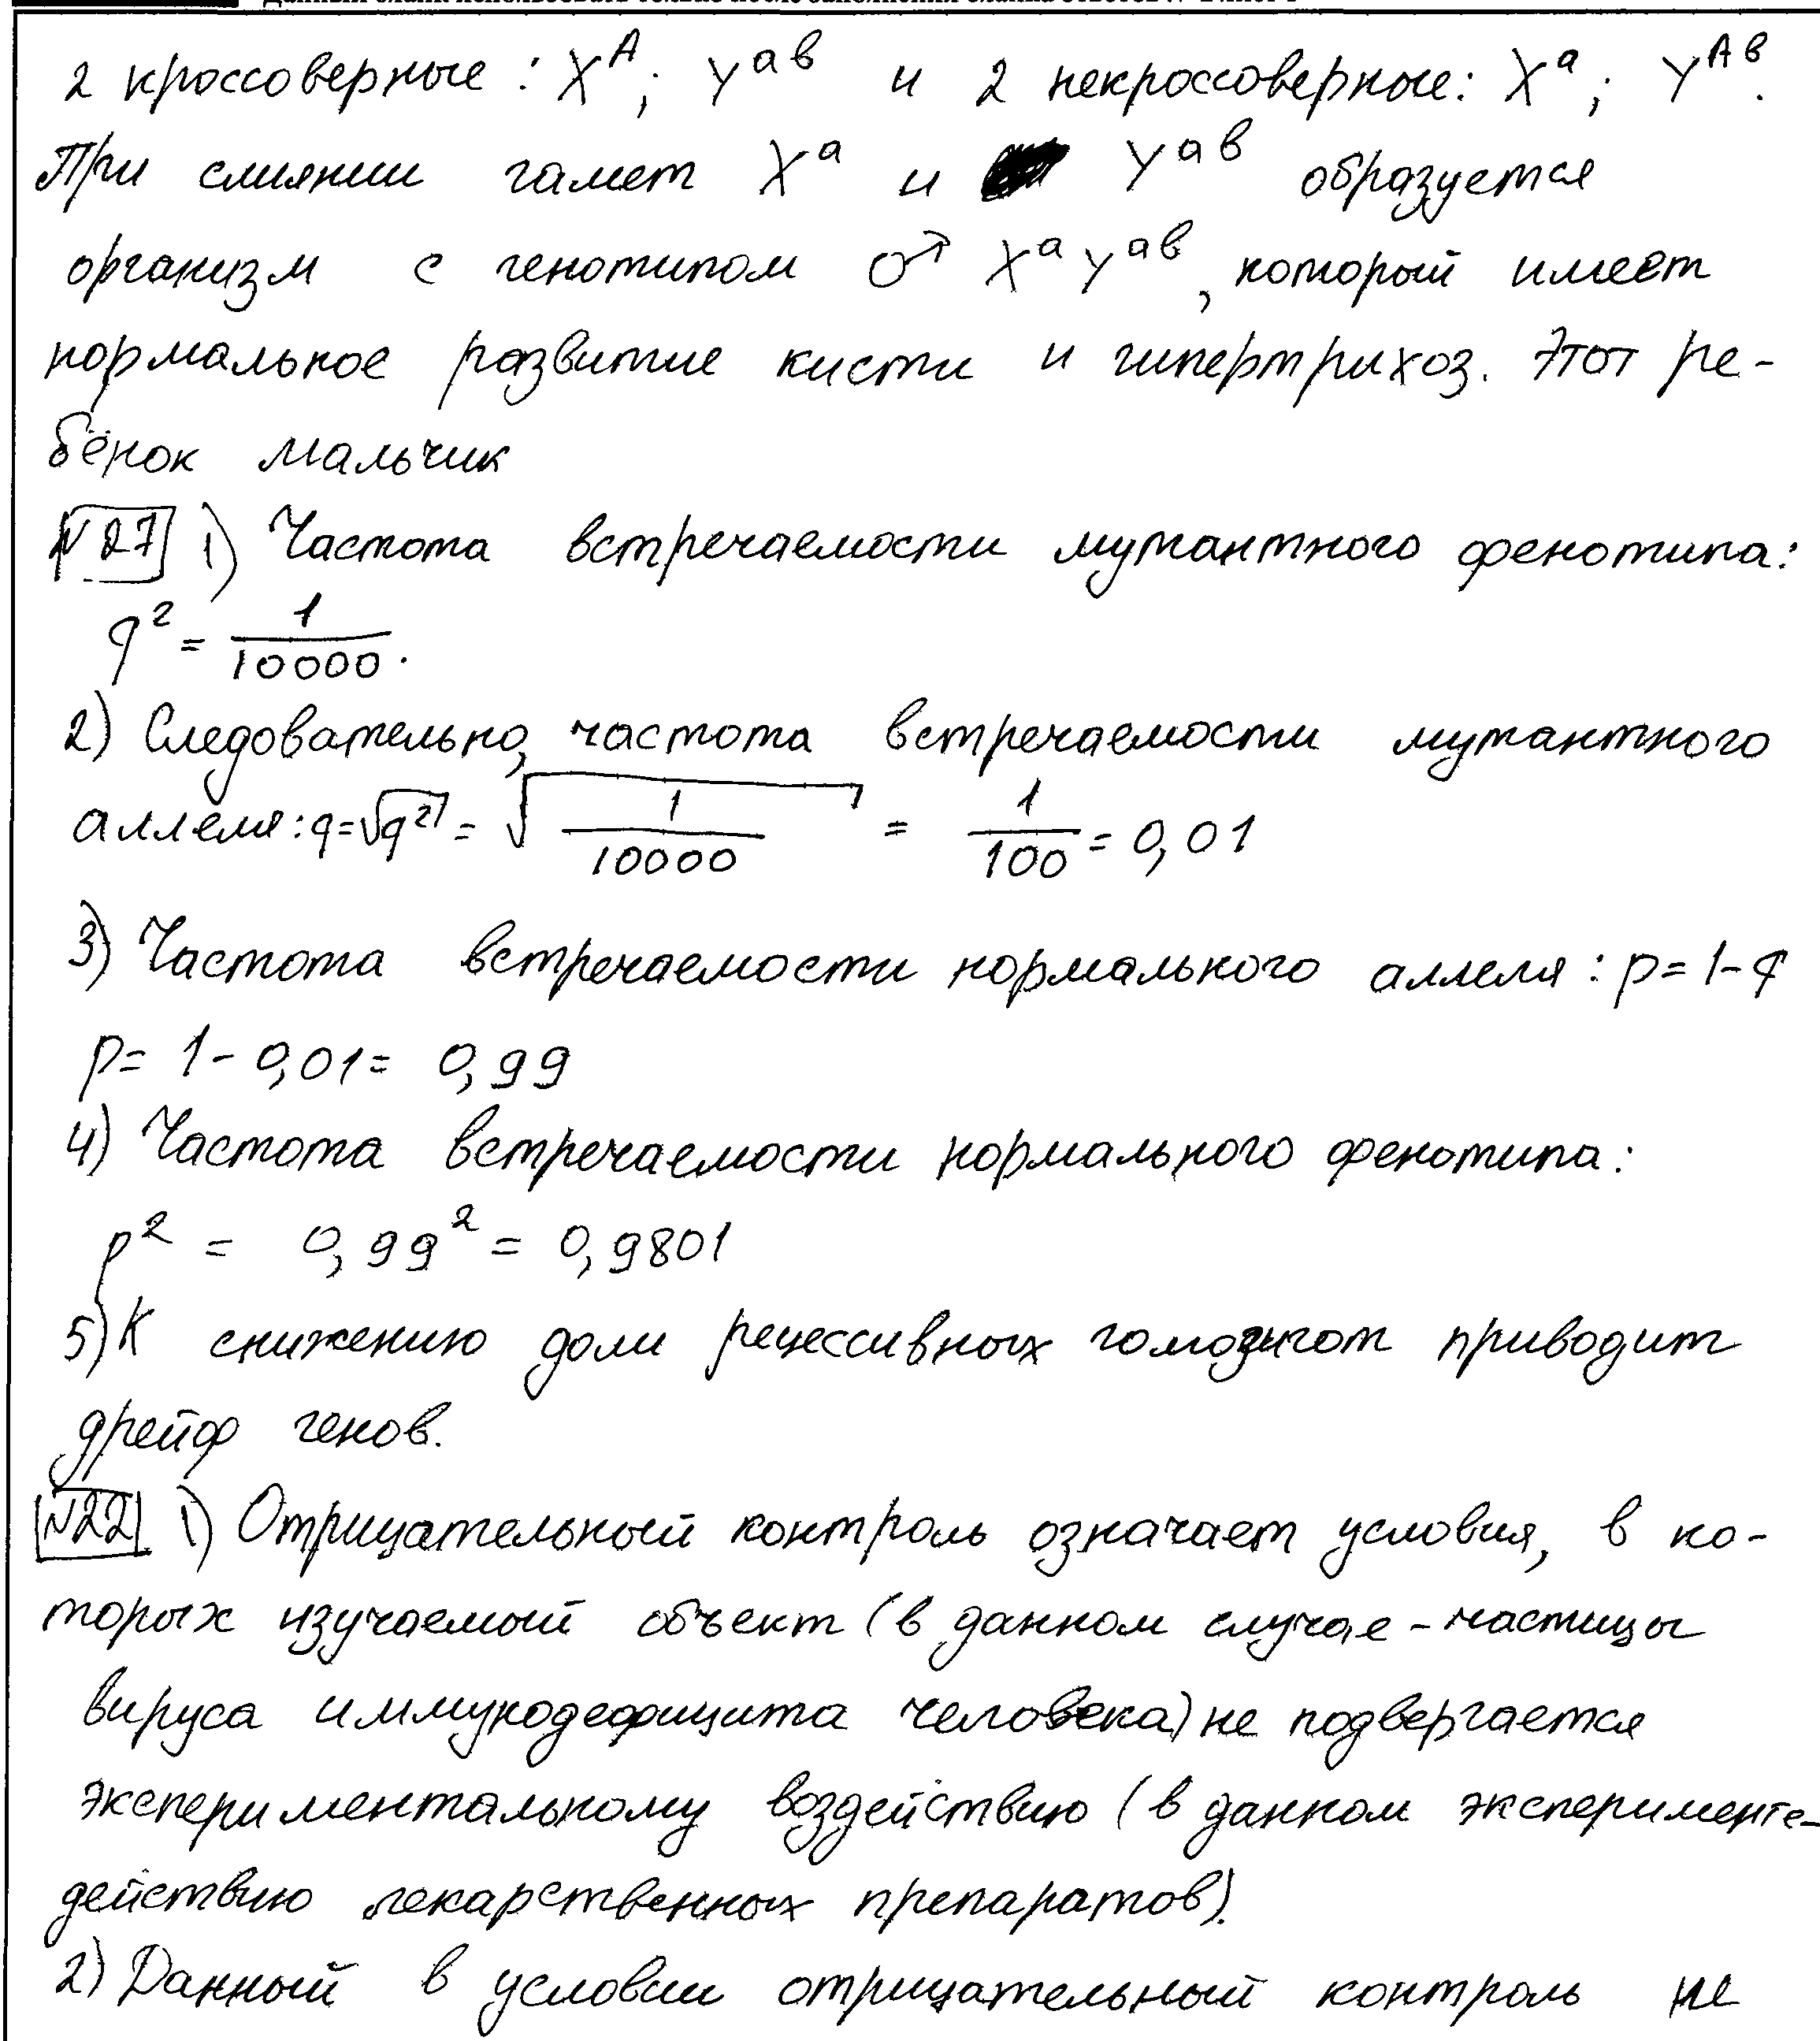 Данный бланк использовать только после заполнения бланка ответов № 2 лист 1
2 кроссоверные: Xᴬ; Yᵃᵇ и 2 некроссоверные: Xᵃ; Yᴬᵇ.
При слиянии гамет Xᵃ и Yᵃᵇ образуется
организм с генотипом ♂ XᵃYᵃᵇ, который имеет
нормальное развитие кисти и гипертрихоз. Этот ре-
бёнок мальчик
№27 1) Частота встречаемости мутантного фенотипа:
q² = 1/10000.
2) Следовательно, частота встречаемости мутантного
аллеля: q=√q² = √1/10000 = 1/100 = 0,01
3) Частота встречаемости нормального аллеля: p=1-q
p= 1-0,01= 0,99
4) Частота встречаемости нормального фенотипа:
p² = 0,99² = 0,9801
5) К снижению доли рецессивных гомозигот приводит
дрейф генов.
№22 1) Отрицательный контроль означает условия, в ко-
торых изучаемый объект (в данном случае - частицы
вируса иммунодефицита человека) не подвергается
экспериментальному воздействию (в данном эксперименте-
действию лекарственных препаратов).
2) Данный в условии отрицательный контроль не